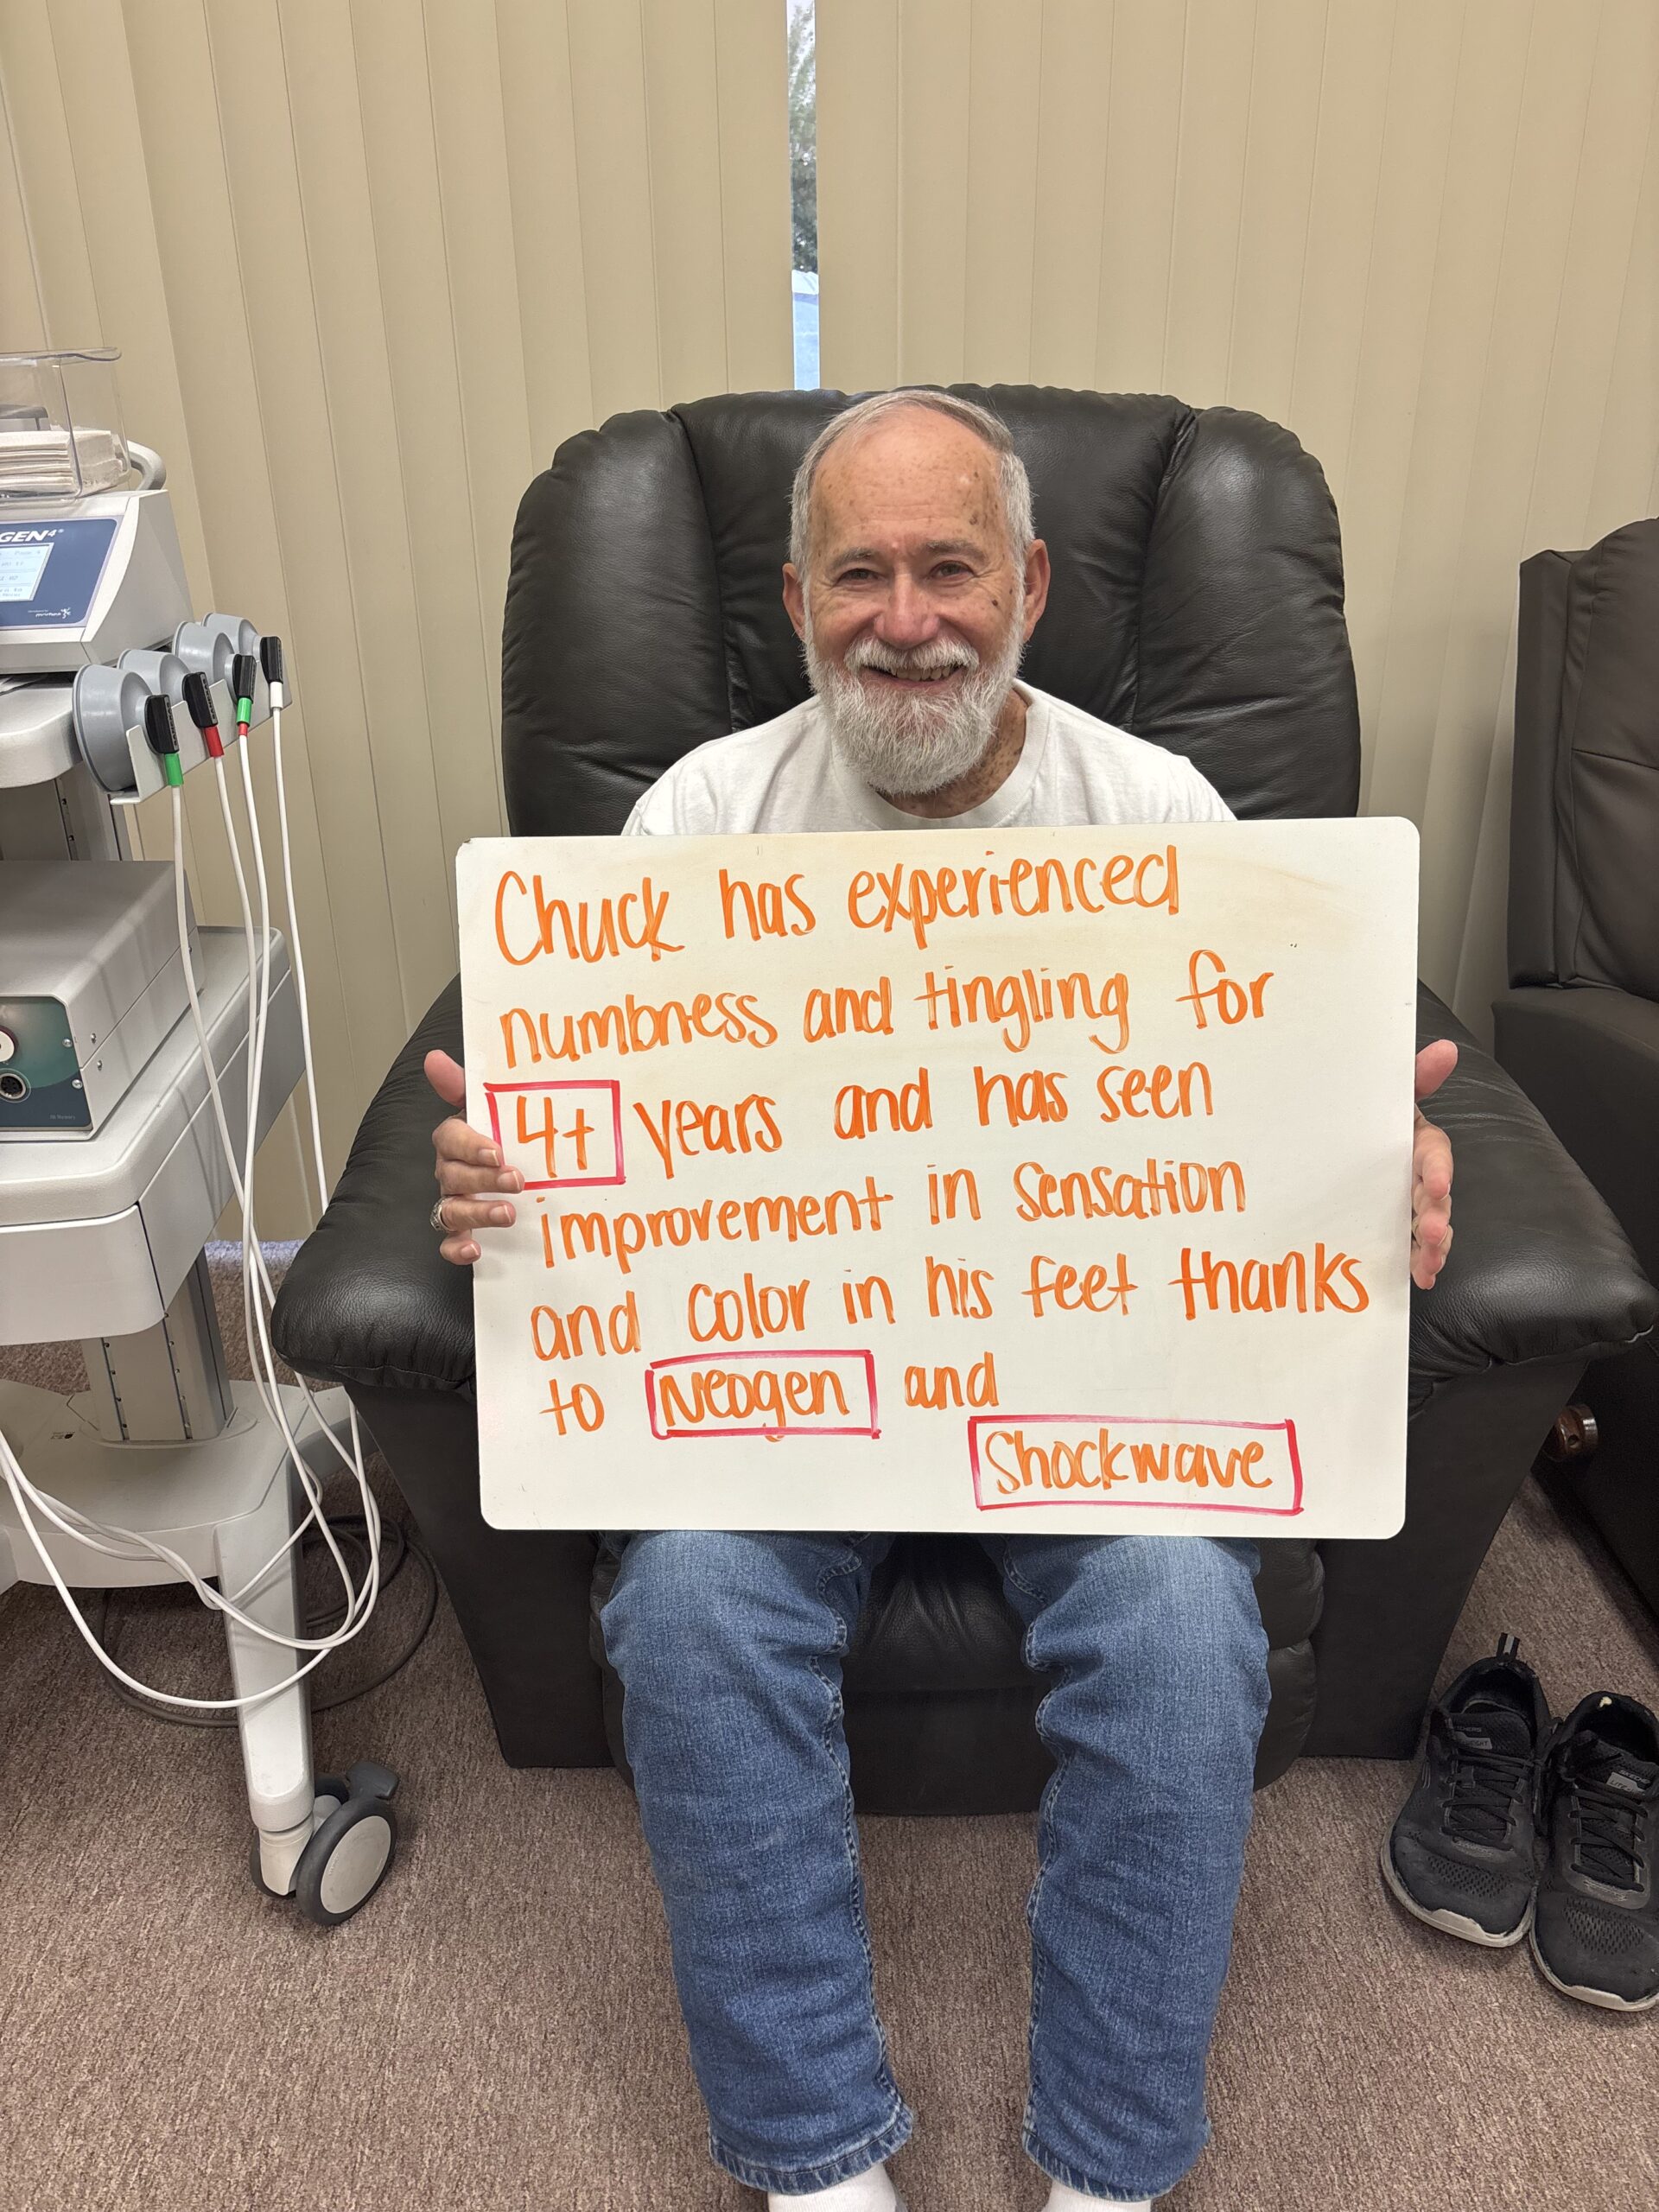 GEN4®
Chuck has experienced
numbness and tingling for
4+ years and has seen
improvement in sensation
and color in his feet thanks
to Neogen and
Shockwave